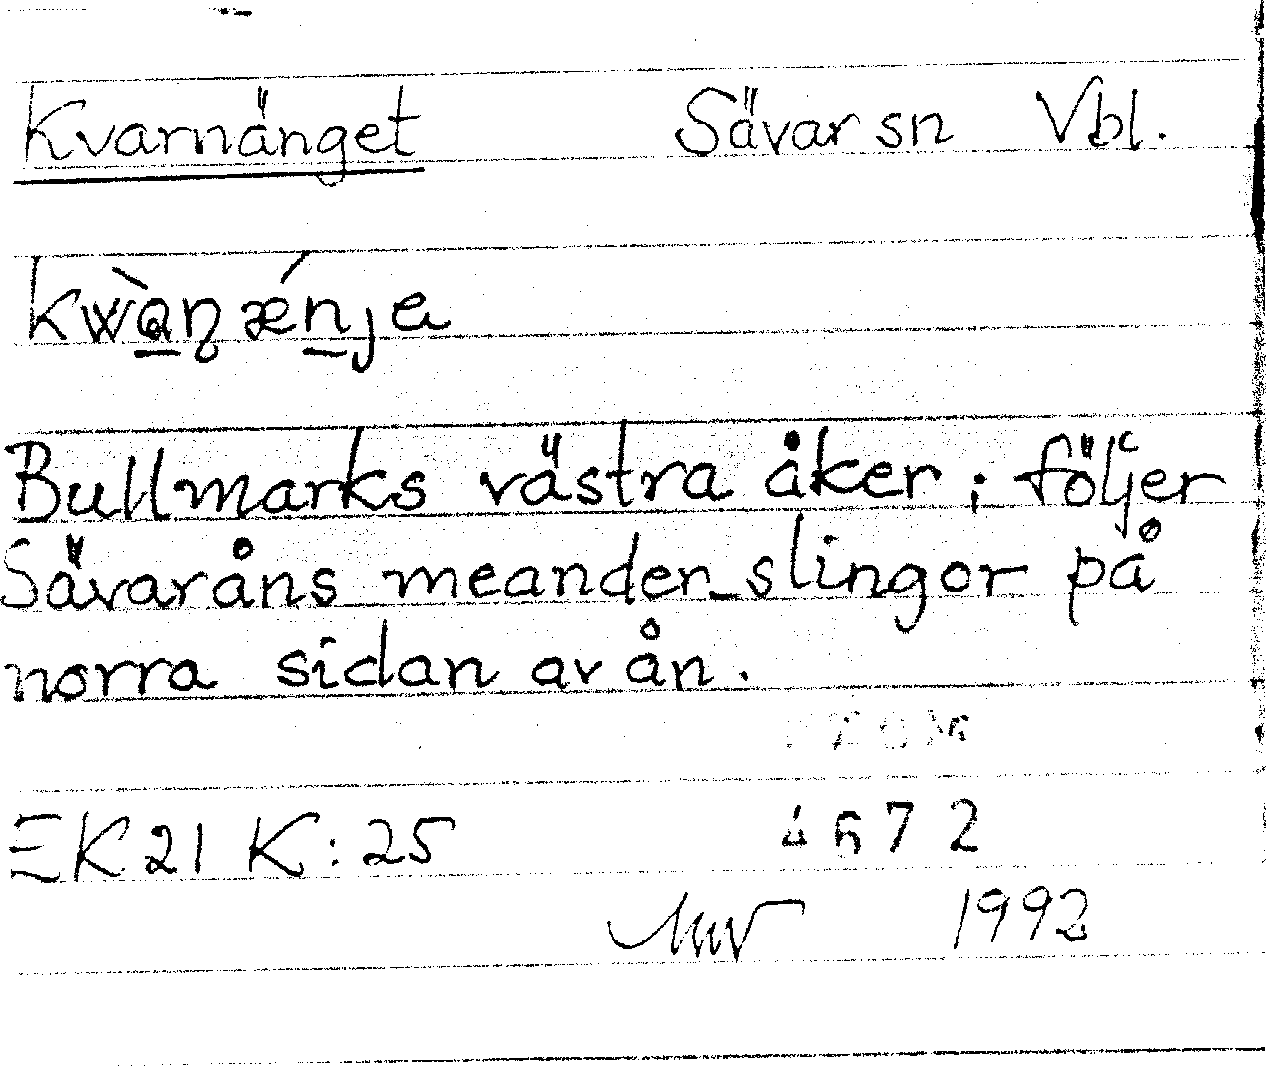 Kvarnänget Sävar sn Vbl.
Bullmarks västra åker; följer
Sävaråns meander-slingor på
norra sidan av ån.
EK21 K:25 4672
1992